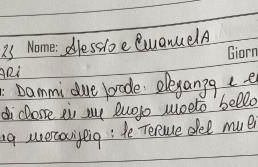 23 Nome: Alessio e EmanuelA
Giorn
ARi
: Dammi due parole: eleganza e e
di classe in un luogo molto bello
na meraviglia: le Terme del muli